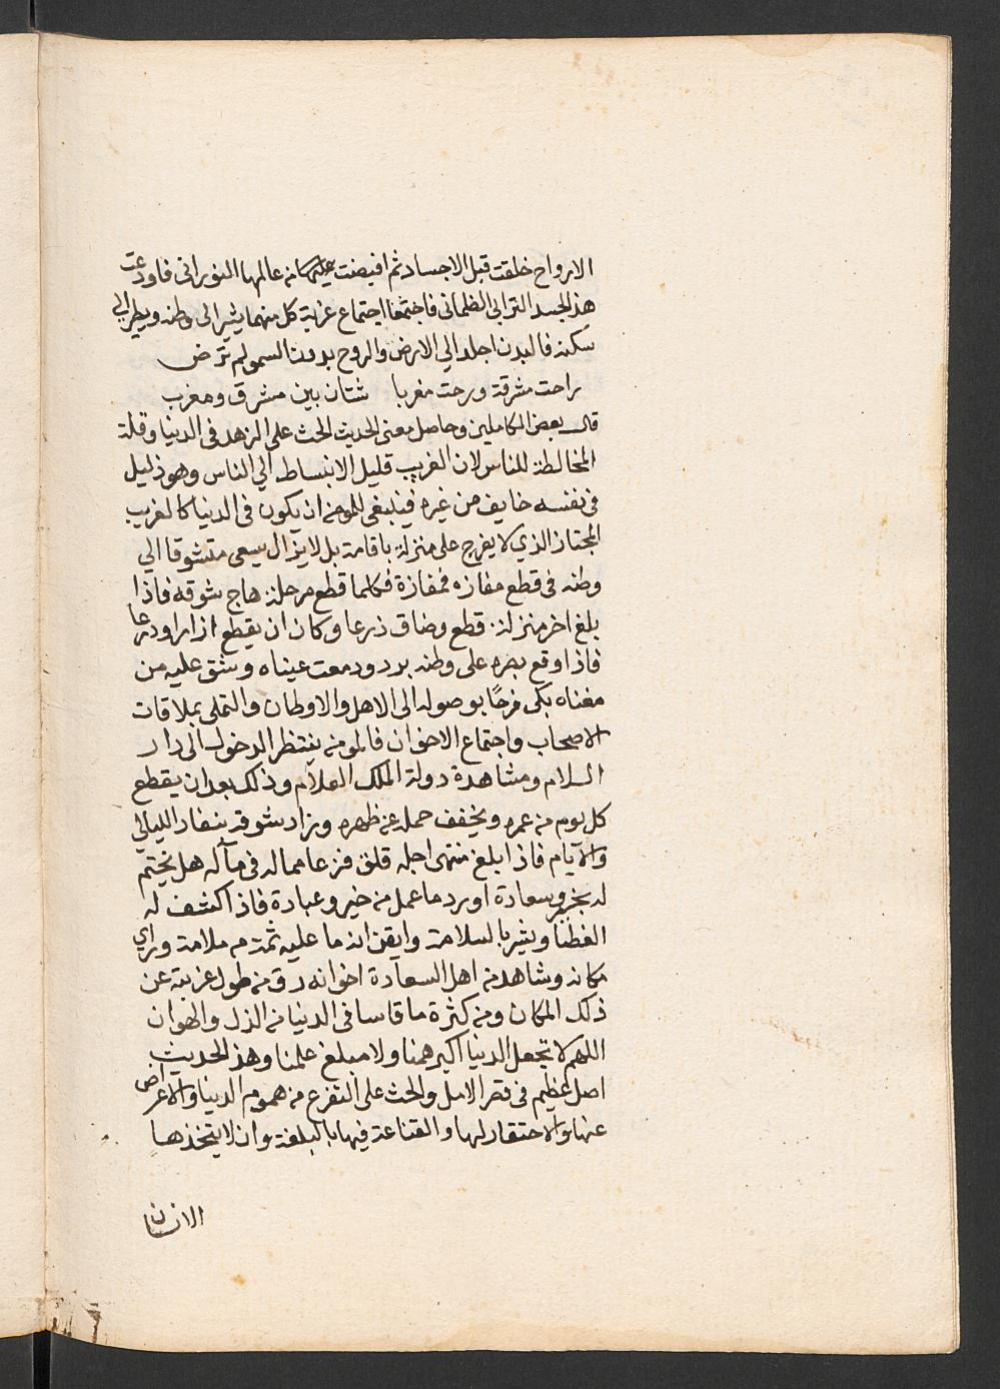 الارواح خلقت قبل الاجساد ثم افيضت عليها من عالمها النوراني فاودعت
هذا الجسد الترابي الظلماني فاجتمعا اجتماع غربة كل منهما يشير الى وطنه ويطير الي
سكنه فالبدن اخلد الي الارض والروح بدون السمو لم ترض
راحت مشرقة ورحت مغربا شتان بين مشرق ومغرب
قال بعض الكاملين وحاصل معنى الحديث الحث على الزهد في الدنيا وقلة
المخالطة للناس لان الغريب قليل الانبساط الي الناس وهو ذليل
في نفسه خايف من غيره فينبغى للمومن ان يكون في الدنيا كالغريب
المجتاز الذي لا يعرج على منزلة باقامة بل لا يزال يسعى متشوقا الي
وطنه في قطع مفازه فمفازة فكلما قطع مرحلة هاج شوقه فاذا
بلغ اخر منزلة قطع وضاق ذرعا وكان ان يقطع ازارا ودرعا
فاذا وقع بصره على وطنه برد ودمعت عيناه وشق عليه من
مغناه بكى فرحًا بوصوله الى الاهل والاوطان والتملى بملاقات
الاصحاب واجتماع الاخوان فالمومن ينتظر الدخول الى دار
السلام ومشاهدة دولة الملك العلام وذلك بعد ان يقطع
كل يوم من عمره ويخفف حمله عن ظهره وزاد شوقه بنفاد الليالي
والايام فاذا بلغ منتهى اجله قلق فزعا مما له في مآله هل يختم
له بخير وسعادة او يرد ما عمل من خير وعبادة فاذا كشف له
الغطا وبشر بالسلامة وايقن انه ما عليه ثمة من ملامة وراي
مكانه وشاهد من اهل السعادة اخوانه رق من طول غربته عن
ذلك المكان ومن كثرة ما قاسا في الدنيا من الذل والهوان
اللهم لا تجعل الدنيا اكبر همنا ولا مبلغ علمنا وهذا الحديث
اصل عظيم في قصر الامل والحث على التفرغ من هموم الدنيا والاعراض
عنها والاحتقار لها والقناعة فيها بالبلغة وان لا يتخذها
الانسان